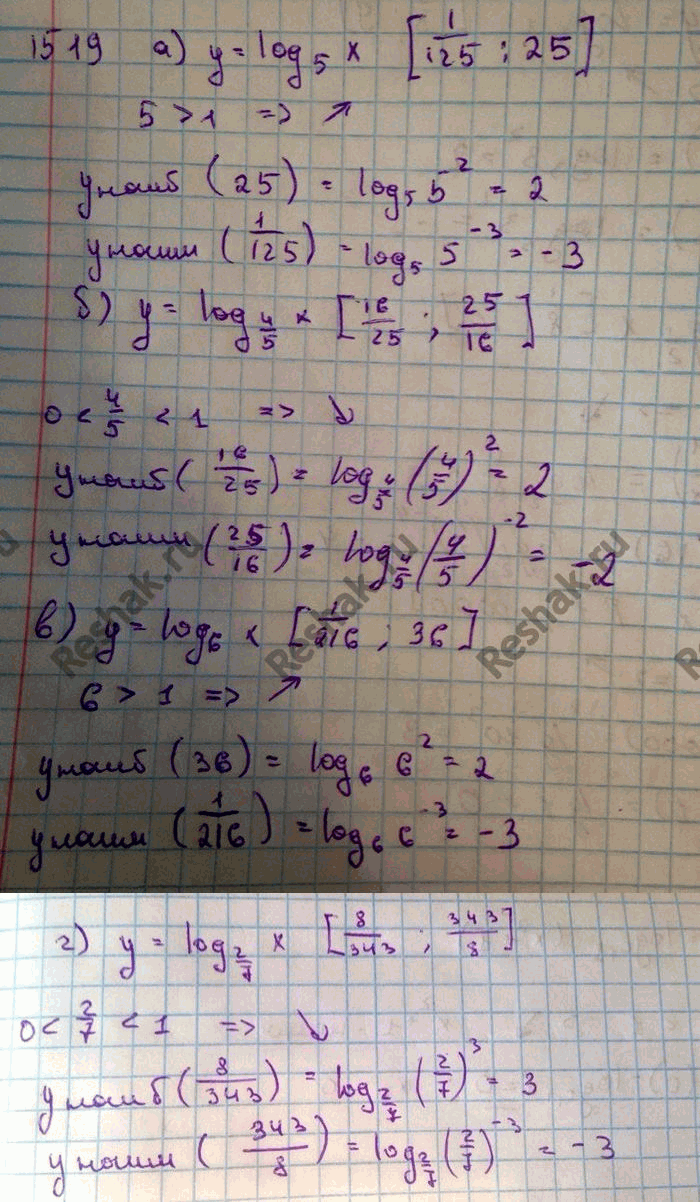 1519 а) y = log₅ x [1/125 ; 25]
5 > 1 => ↗
y наиб (25) = log₅ 5⁻² = 2
y наим (1/125) = log₅ 5⁻³ = -3
б) y = log_{4/5} x [16/25 ; 25/16]
0 < 4/5 < 1 => ↘
y наиб (16/25) = log_{4/5} (4/5)² = 2
y наим (25/16) = log_{4/5} (4/5)⁻² = -2
в) y = log₆ x [1/216 ; 36]
6 > 1 => ↗
y наиб (36) = log₆ 6² = 2
y наим (1/216) = log₆ 6⁻³ = -3
г) y = log_{2/7} x [8/343 ; 343/8]
0 < 2/7 < 1 => ↘
y наиб (8/343) = log_{2/7} (2/7)³ = 3
y наим (343/8) = log_{2/7} (2/7)⁻³ = -3
Reshak.ru
Reshak.ru
Reshak.ru